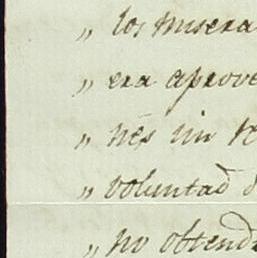 „ los misera
„ era aprove
„ nés un re
„ voluntad d
„ no obtend